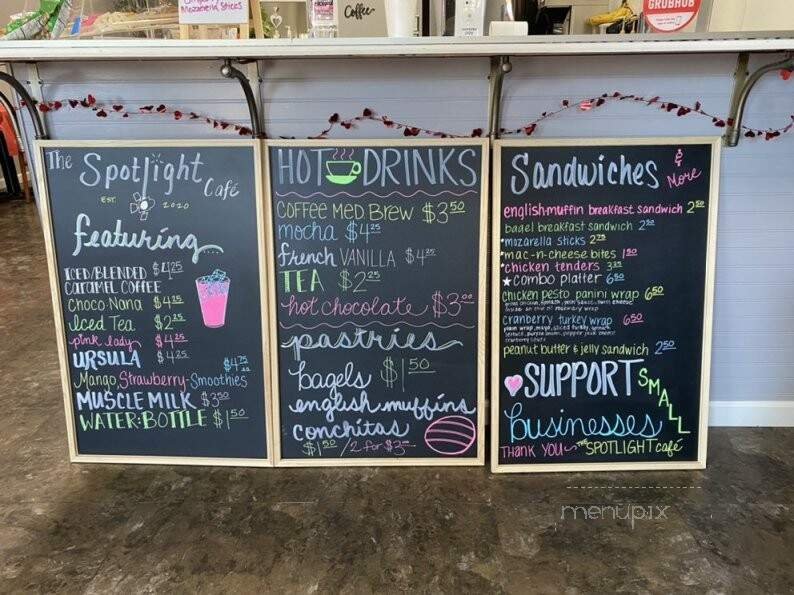 mozzarella sticks
Coffee
GRUBHUB
The Spotlight Café
EST. 2020
featuring...
ICED/BLENDED CARAMEL COFFEE $4.25
Choco-Nana $4.25
Iced Tea $2.25
pink lady $4.25
URSULA $4.25
Mango, Strawberry-Smoothies $4.75
MUSCLE MILK $3.50
WATER BOTTLE $1.50
HOT DRINKS
COFFEE MED. BREW $3.50
mocha $4.25
french VANILLA $4.25
TEA $2.25
hot chocolate $3.00
pastries
bagels $1.50
english muffins
conchitas
$1.50 / 2 for $3.00
Sandwiches & More
english-muffin breakfast sandwich 2.50
bagel breakfast sandwich 2.50
*mozarella sticks 2.75
*mac-n-cheese bites 1.50
*chicken tenders 3.25
★combo platter 6.50
chicken pesto panini wrap 6.50
cranberry turkey wrap 6.50
peanut butter & jelly sandwich 2.50
SUPPORT SMALL
businesses
THANK YOU ~ THE SPOTLIGHT café
menupix